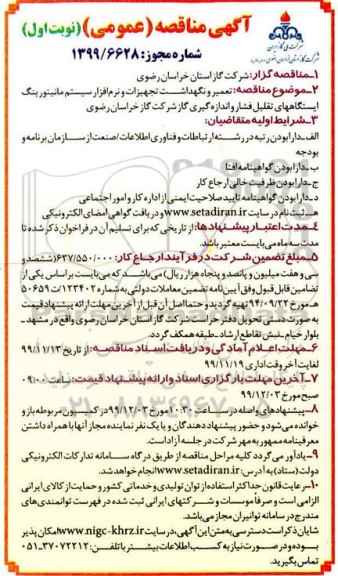 آگهی مناقصه (عمومی) (نوبت اول)
شماره مجوز: ۱۳۹۹/۶۶۲۸
شرکت ملی گاز ایران
شرکت گاز استان خراسان رضوی
۱_مناقصه گزار: شرکت گاز استان خراسان رضوی
۲_موضوع مناقصه: تعمیر و نگهداشت تجهیزات و نرم‌افزار سیستم مانیتورینگ
ایستگاههای تقلیل فشار و اندازه گیری گاز شرکت گاز خراسان رضوی
۳_شرایط اولیه متقاضیان:
الف_دارا بودن رتبه در رشته ارتباطات و فناوری اطلاعات/صنعت از سازمان برنامه و
بودجه
ب_دارا بودن گواهینامه افتا
ج_دارا بودن ظرفیت خالی ارجاع کار
د_دارا بودن گواهینامه تایید صلاحیت ایمنی از اداره کار و امور اجتماعی
ه_ثبت نام در سایت www.setadiran.ir و دریافت گواهی امضای الکترونیکی
۴_مدت اعتبار پیشنهادها: از تاریخی که برای تسلیم آن در فراخوان ذکر شده تا
مدت سه ماه می بایست معتبر باشد.
۵_مبلغ تضمین شرکت در فرآیند ارجاع کار: ۶۳۷/۵۵۰/۰۰۰ (ششصد و
سی و هفت میلیون و پانصد و پنجاه هزار ریال) می باشد که می بایست بر اساس یکی از
تضامین قابل قبول وفق آیین نامه تضمین معاملات دولتی به شماره ۱۲۳۴۰۲/ت ۵۰۶۵۹
ه مورخ ۹۴/۰۹/۲۲ تهیه گردید و حتما اصل آن قبل از آخرین مهلت ارائه پیشنهاد قیمت
به صورت دستی تحویل دفتر حراست شرکت گاز استان خراسان رضوی واقع در مشهد_
بلوار خیام_نبش تقاطع ارشاد_طبقه همکف گردد.
۶_مهلت اعلام آمادگی و دریافت اسناد مناقصه: از تاریخ ۹۹/۱۱/۱۳
لغایت آخر وقت اداری ۹۹/۱۱/۱۹
۷_آخرین مهلت بارگزاری اسناد و ارائه پیشنهاد قیمت: ساعت ۰۹:۰۰
صبح مورخ ۹۹/۱۲/۰۳
۸_پیشنهادهای واصله در ساعت ۱۰:۳۰ مورخ ۹۹/۱۲/۰۳ در کمیسیون مربوطه باز و
خوانده می شود و حضور پیشنهاد دهندگان و یا یک نفر نماینده مجاز آنها با همراه داشتن
معرفینامه ممهور به مهر شرکت در جلسه آزاد است.
۹_یادآور می گردد کلیه مراحل مناقصه از طریق درگاه سامانه تدارکات الکترونیکی
دولت (ستاد) به آدرس: www.setadiran.ir انجام خواهد شد.
۱۰_رعایت قانون حداکثر استفاده از توان تولیدی و خدماتی کشور و حمایت از کالای ایرانی
الزامی است و صرفاً موسسات و شرکتهای ایرانی ثبت شده در فهرست توانمندی های
مندرج در سامانه توانیران مجاز می باشد.
شایان ذکر است دسترسی به متن این آگهی، در سایت www.nigc-khrz.ir امکان پذیر
بوده و در صورت نیاز به کسب اطلاعات بیشتر با تلفن: ۳۷۰۷۲۲۱۲-۰۵۱
تماس بگیرید.